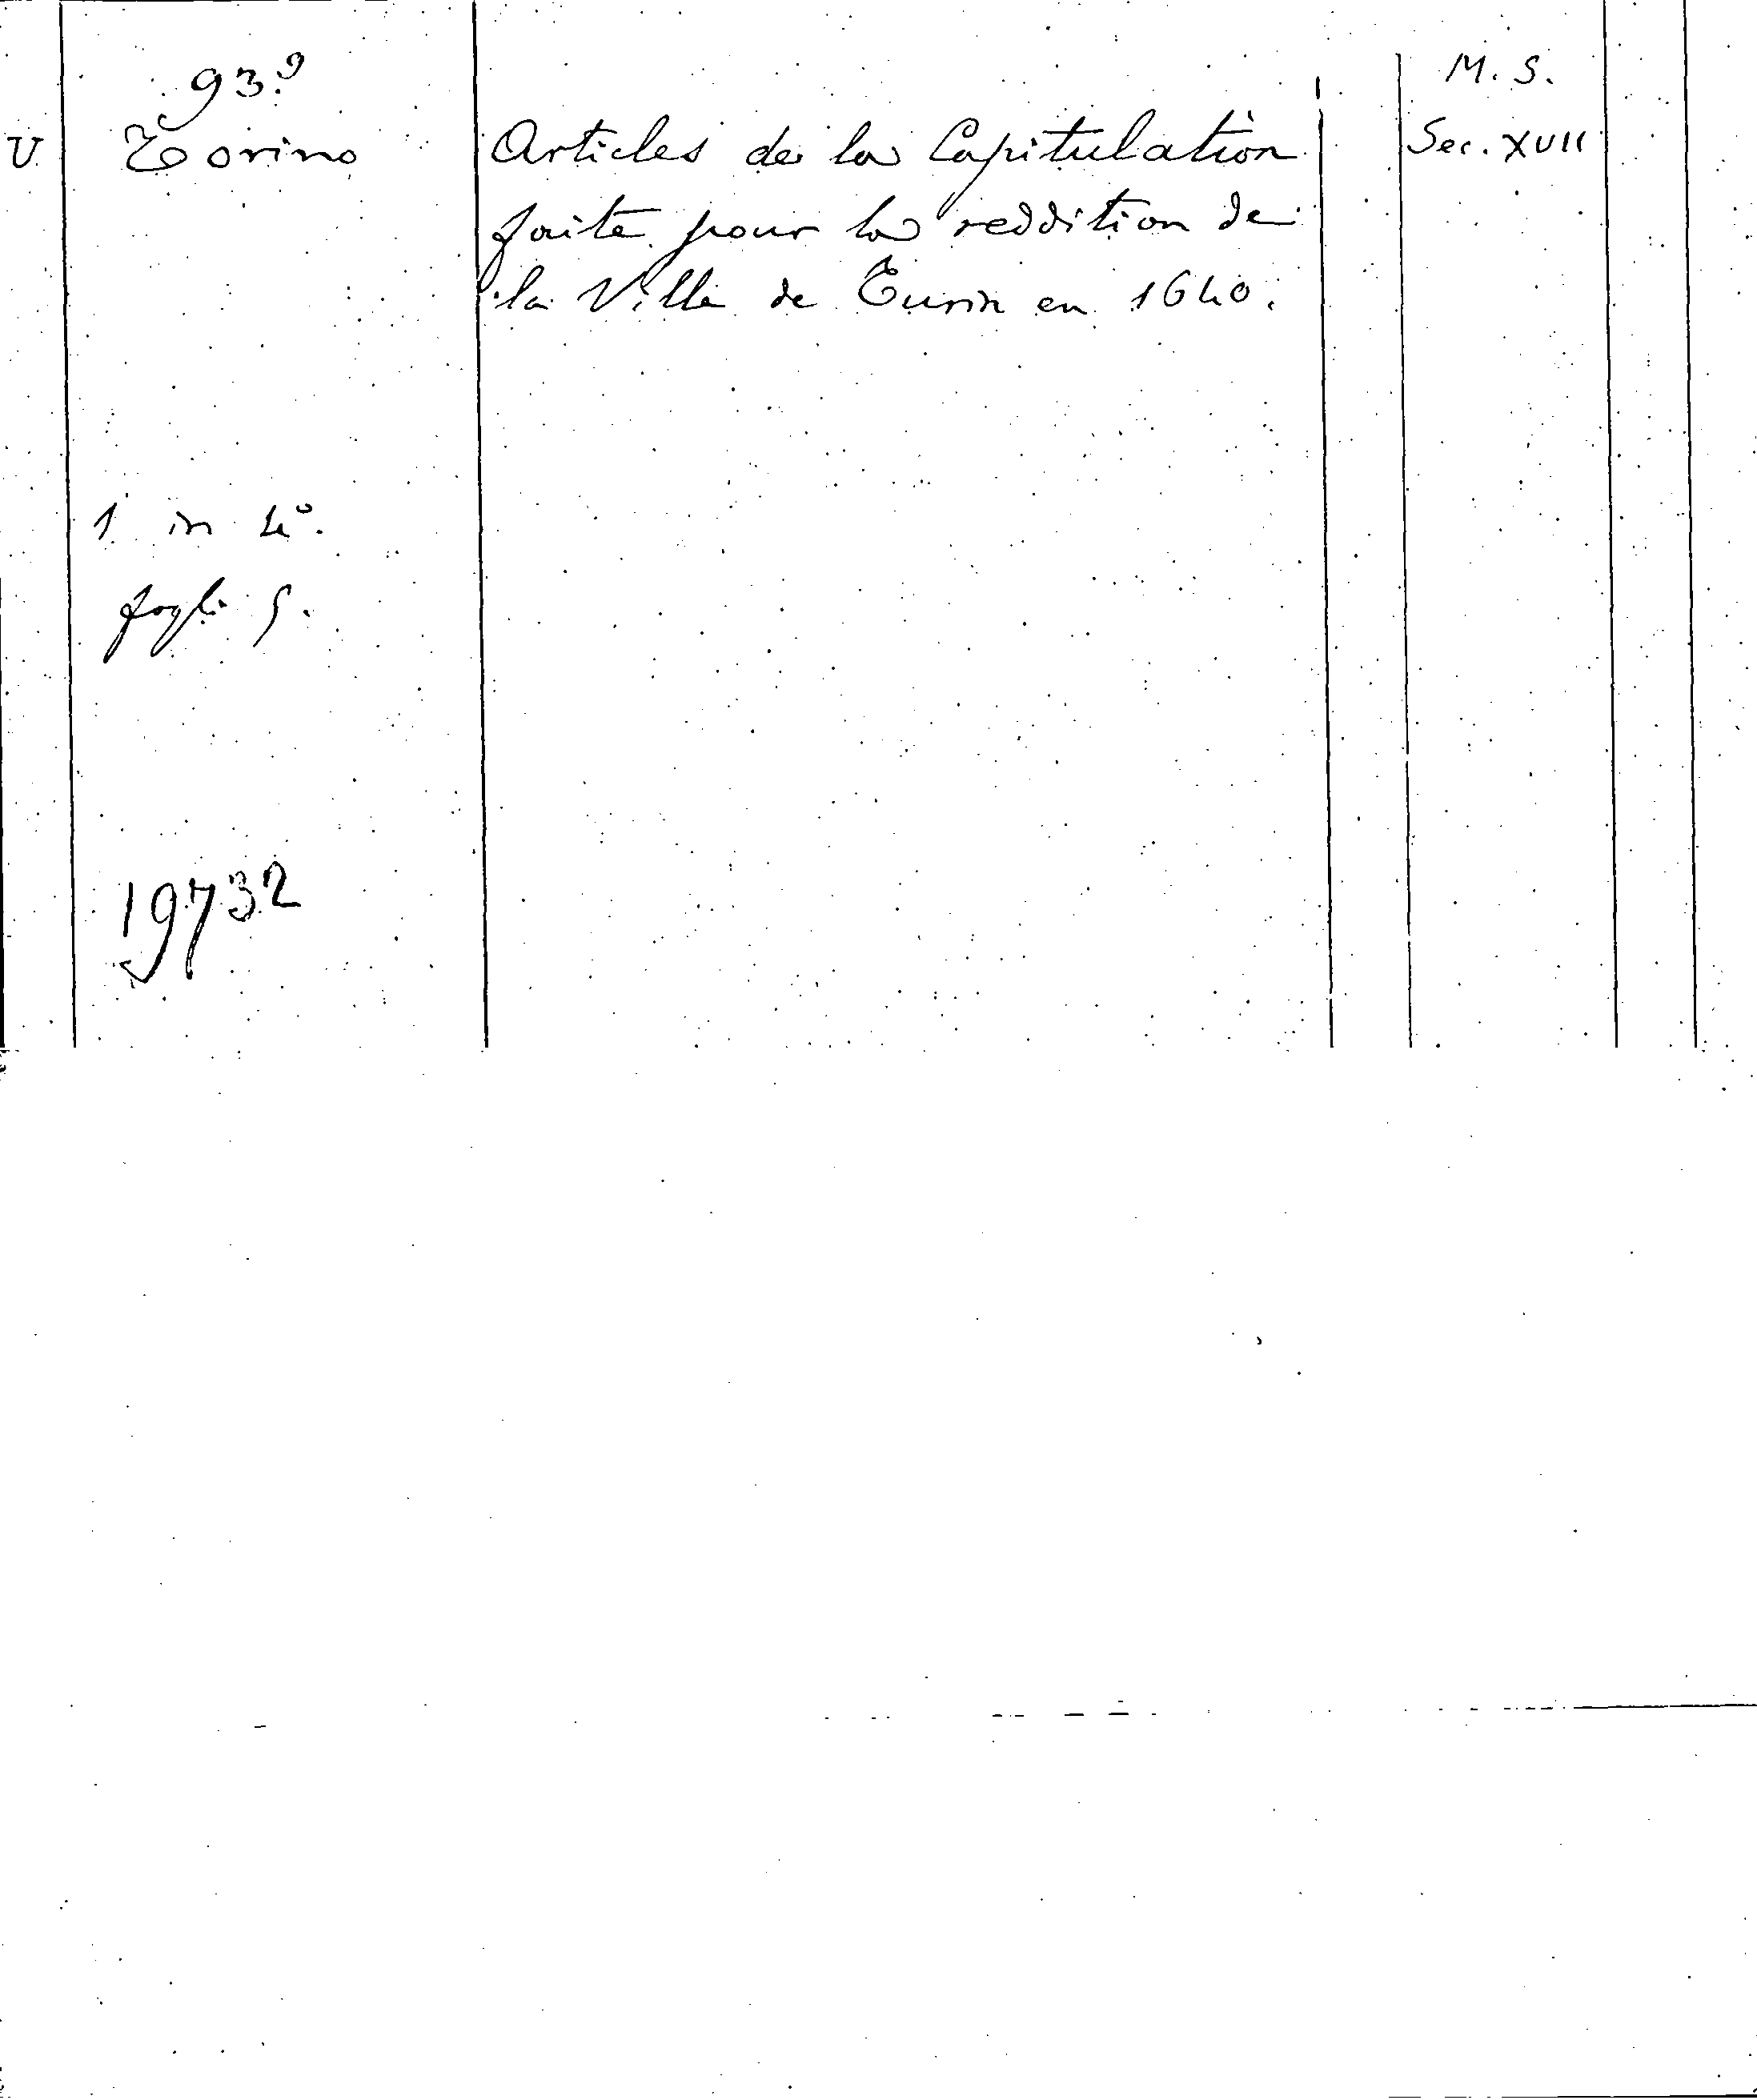 93⁹
M. S.
V. Torino Articles de la Capitulation Sec. XVII
faite pour la reddition de
la Ville de Turin en 1640.
1 in 4°.
fogli 5.
19732